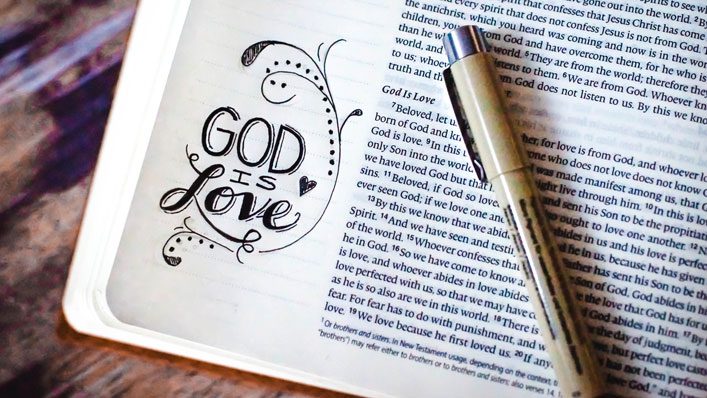 GOD
IS
Love
gone out into the world.
every spirit that confesses that Jesus Christ has come
and every spirit that does not confess Jesus is not from God.
the antichrist, which you heard was coming and now is in the wor
children, you from God and have overcome them, for he who is
than he who world. ⁵They are from the world; therefore they
world, and listens to them. ⁶We are from God. Whoever kn
to us; whoev from God does not listen to us. By this we know
truth and t
God Is Love
⁷Beloved, let u for love is from God, and whoever lo
born of God and kn one who does not love does not know
God is love. ⁹In this l was made manifest among us, that G
only Son into the world might live through him. ¹⁰In this is lo
we have loved God but that and sent his Son to be the propitia
sins. ¹¹Beloved, if God so love ought to love one another. ¹²N
ever seen God; if we love one ano abides in us and his love is perfec
¹³By this we know that we abid he in us, because he has given
Spirit. ¹⁴And we have seen and testif Father has sent his Son to be the
of the world. ¹⁵Whoever confesses tha Son of God, God abides in
he in God. ¹⁶So we have come to know a the love that God has for u
is love, and whoever abides in love abides God abides in him. ¹⁷By
love perfected with us, so that we may have c the day of judgment, be
as he is so also are we in this world. ¹⁸There is but perfect love cast
fear. For fear has to do with punishment, and w has not been perfected
love. ¹⁹We love because he first loved us. ²⁰If any God," and
¹ Or brothers and sisters. In New Testament usage, depending on the context,
"brothers") may refer either to brothers or to brothers and sisters; also verses 14, 1